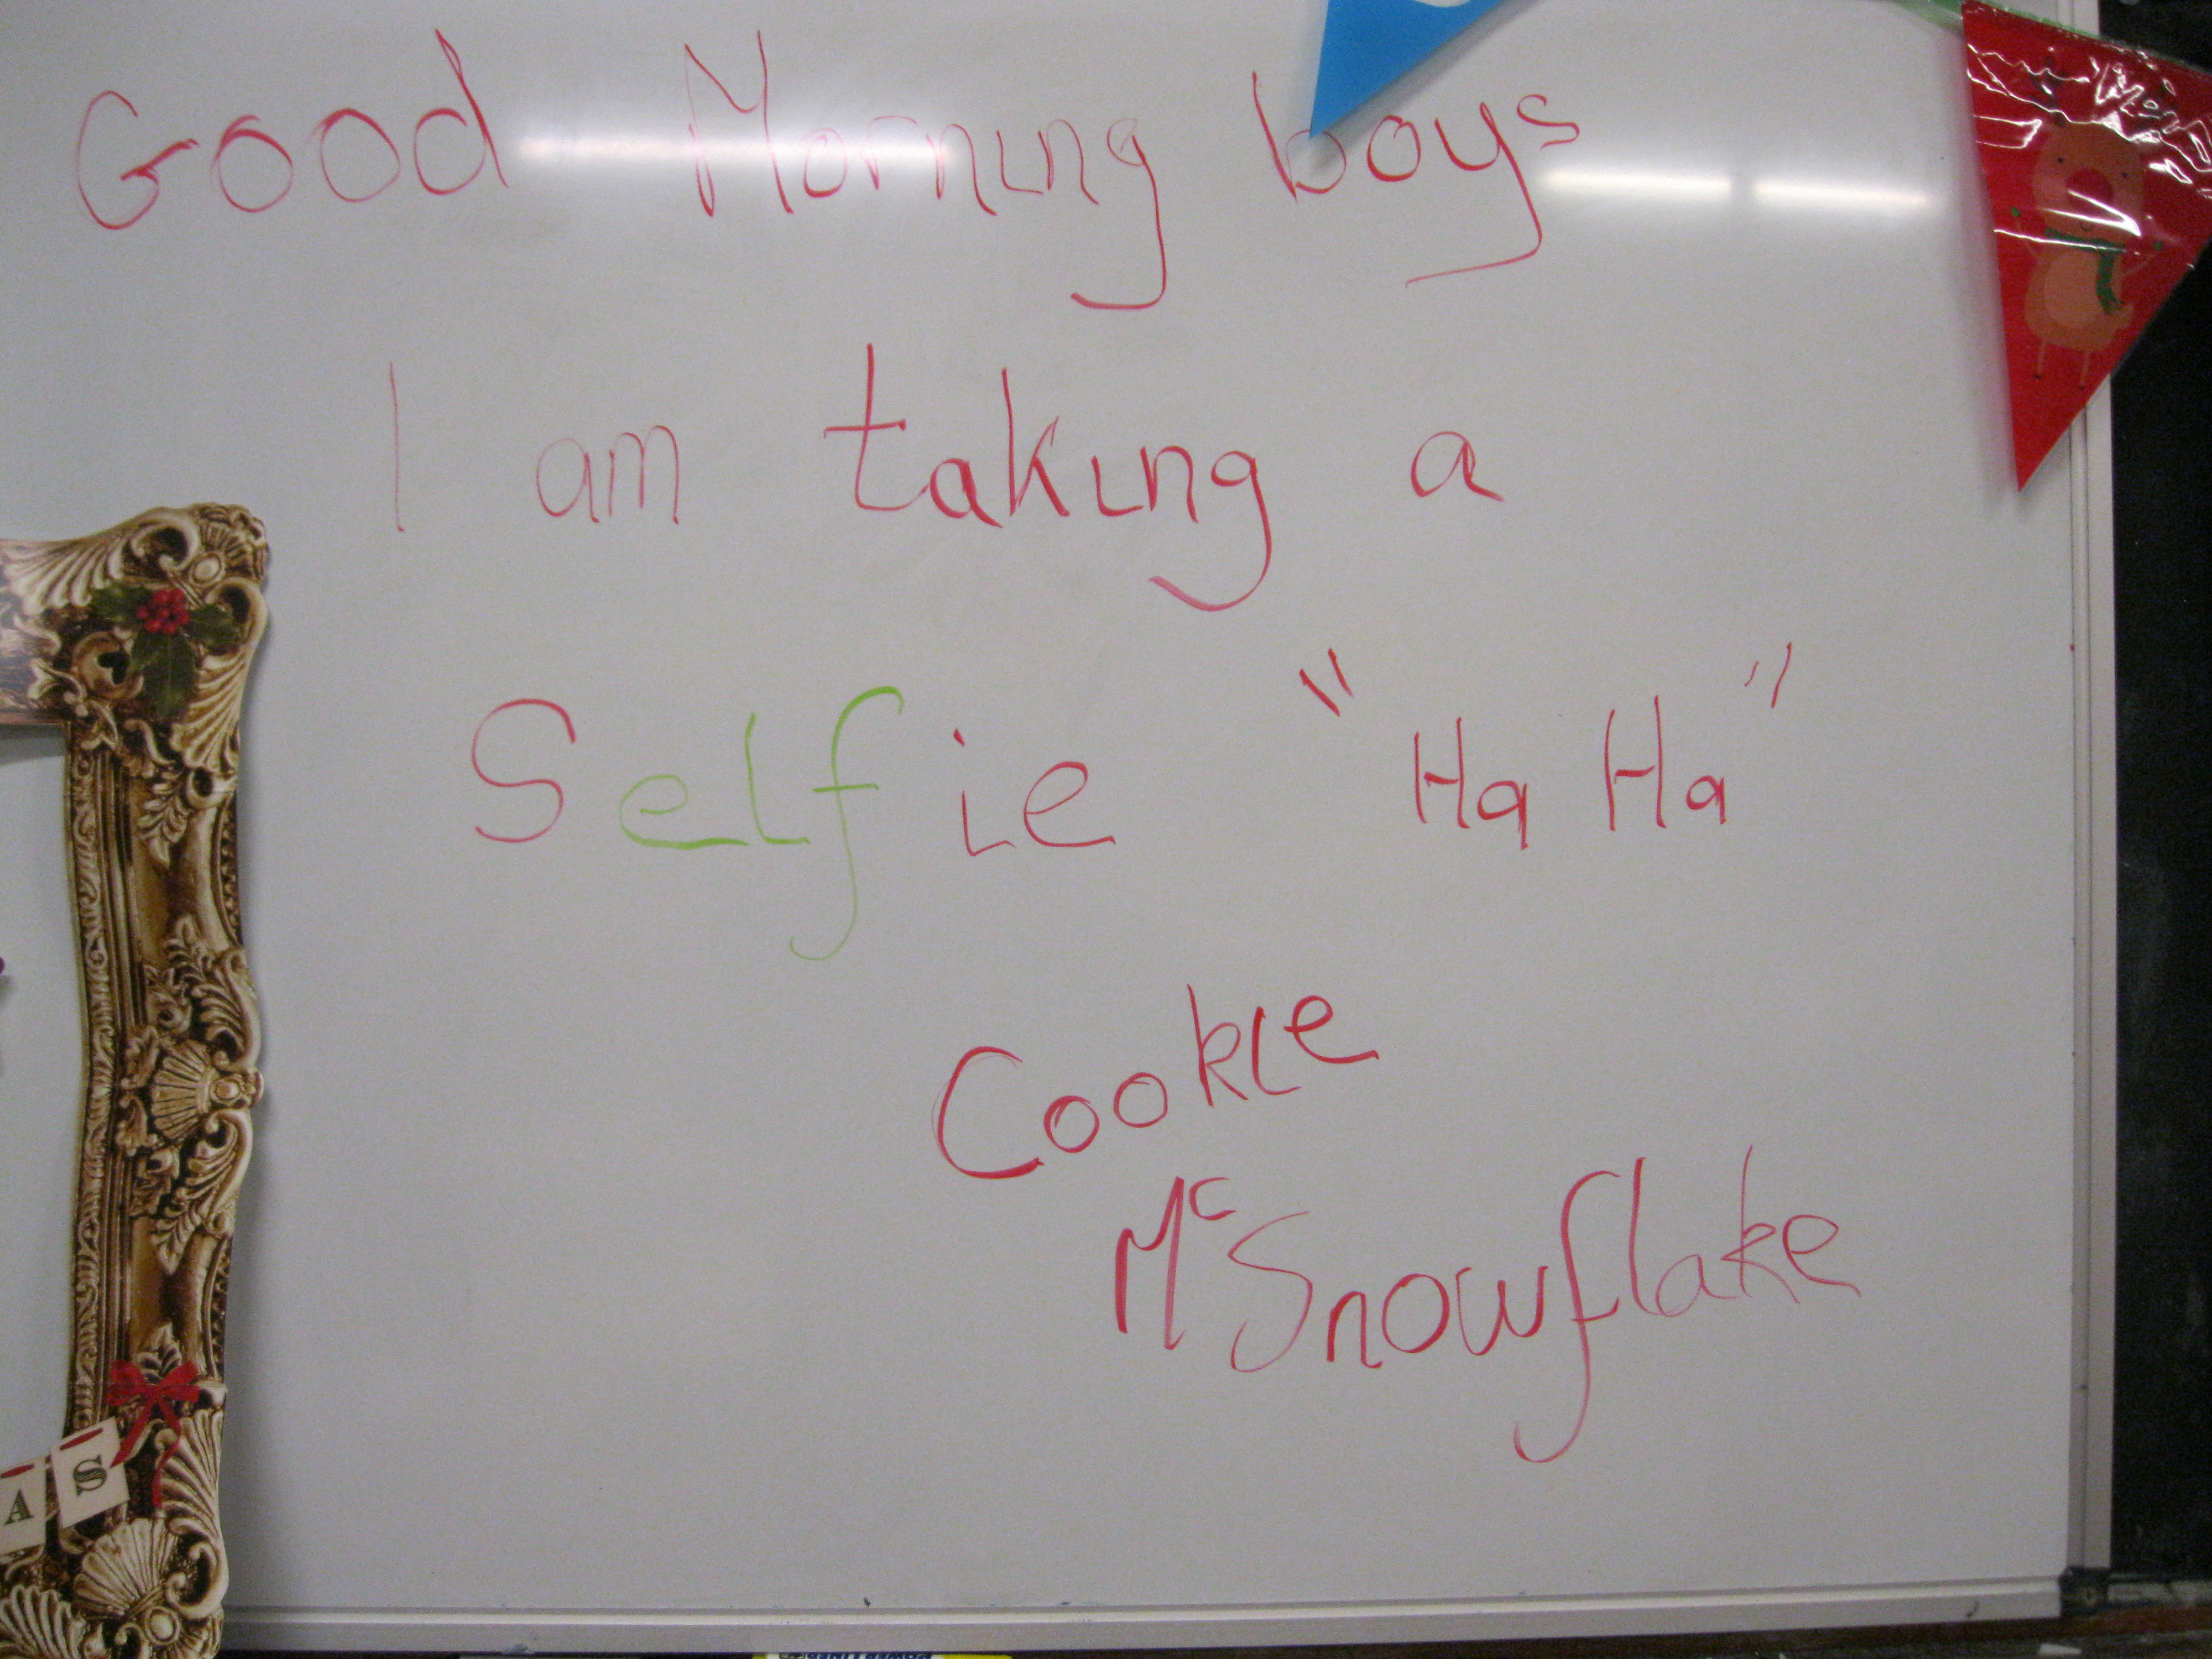 Good Morning boys
I am taking a
Selfie "Ha Ha"
Cookie
McSnowflake
A S